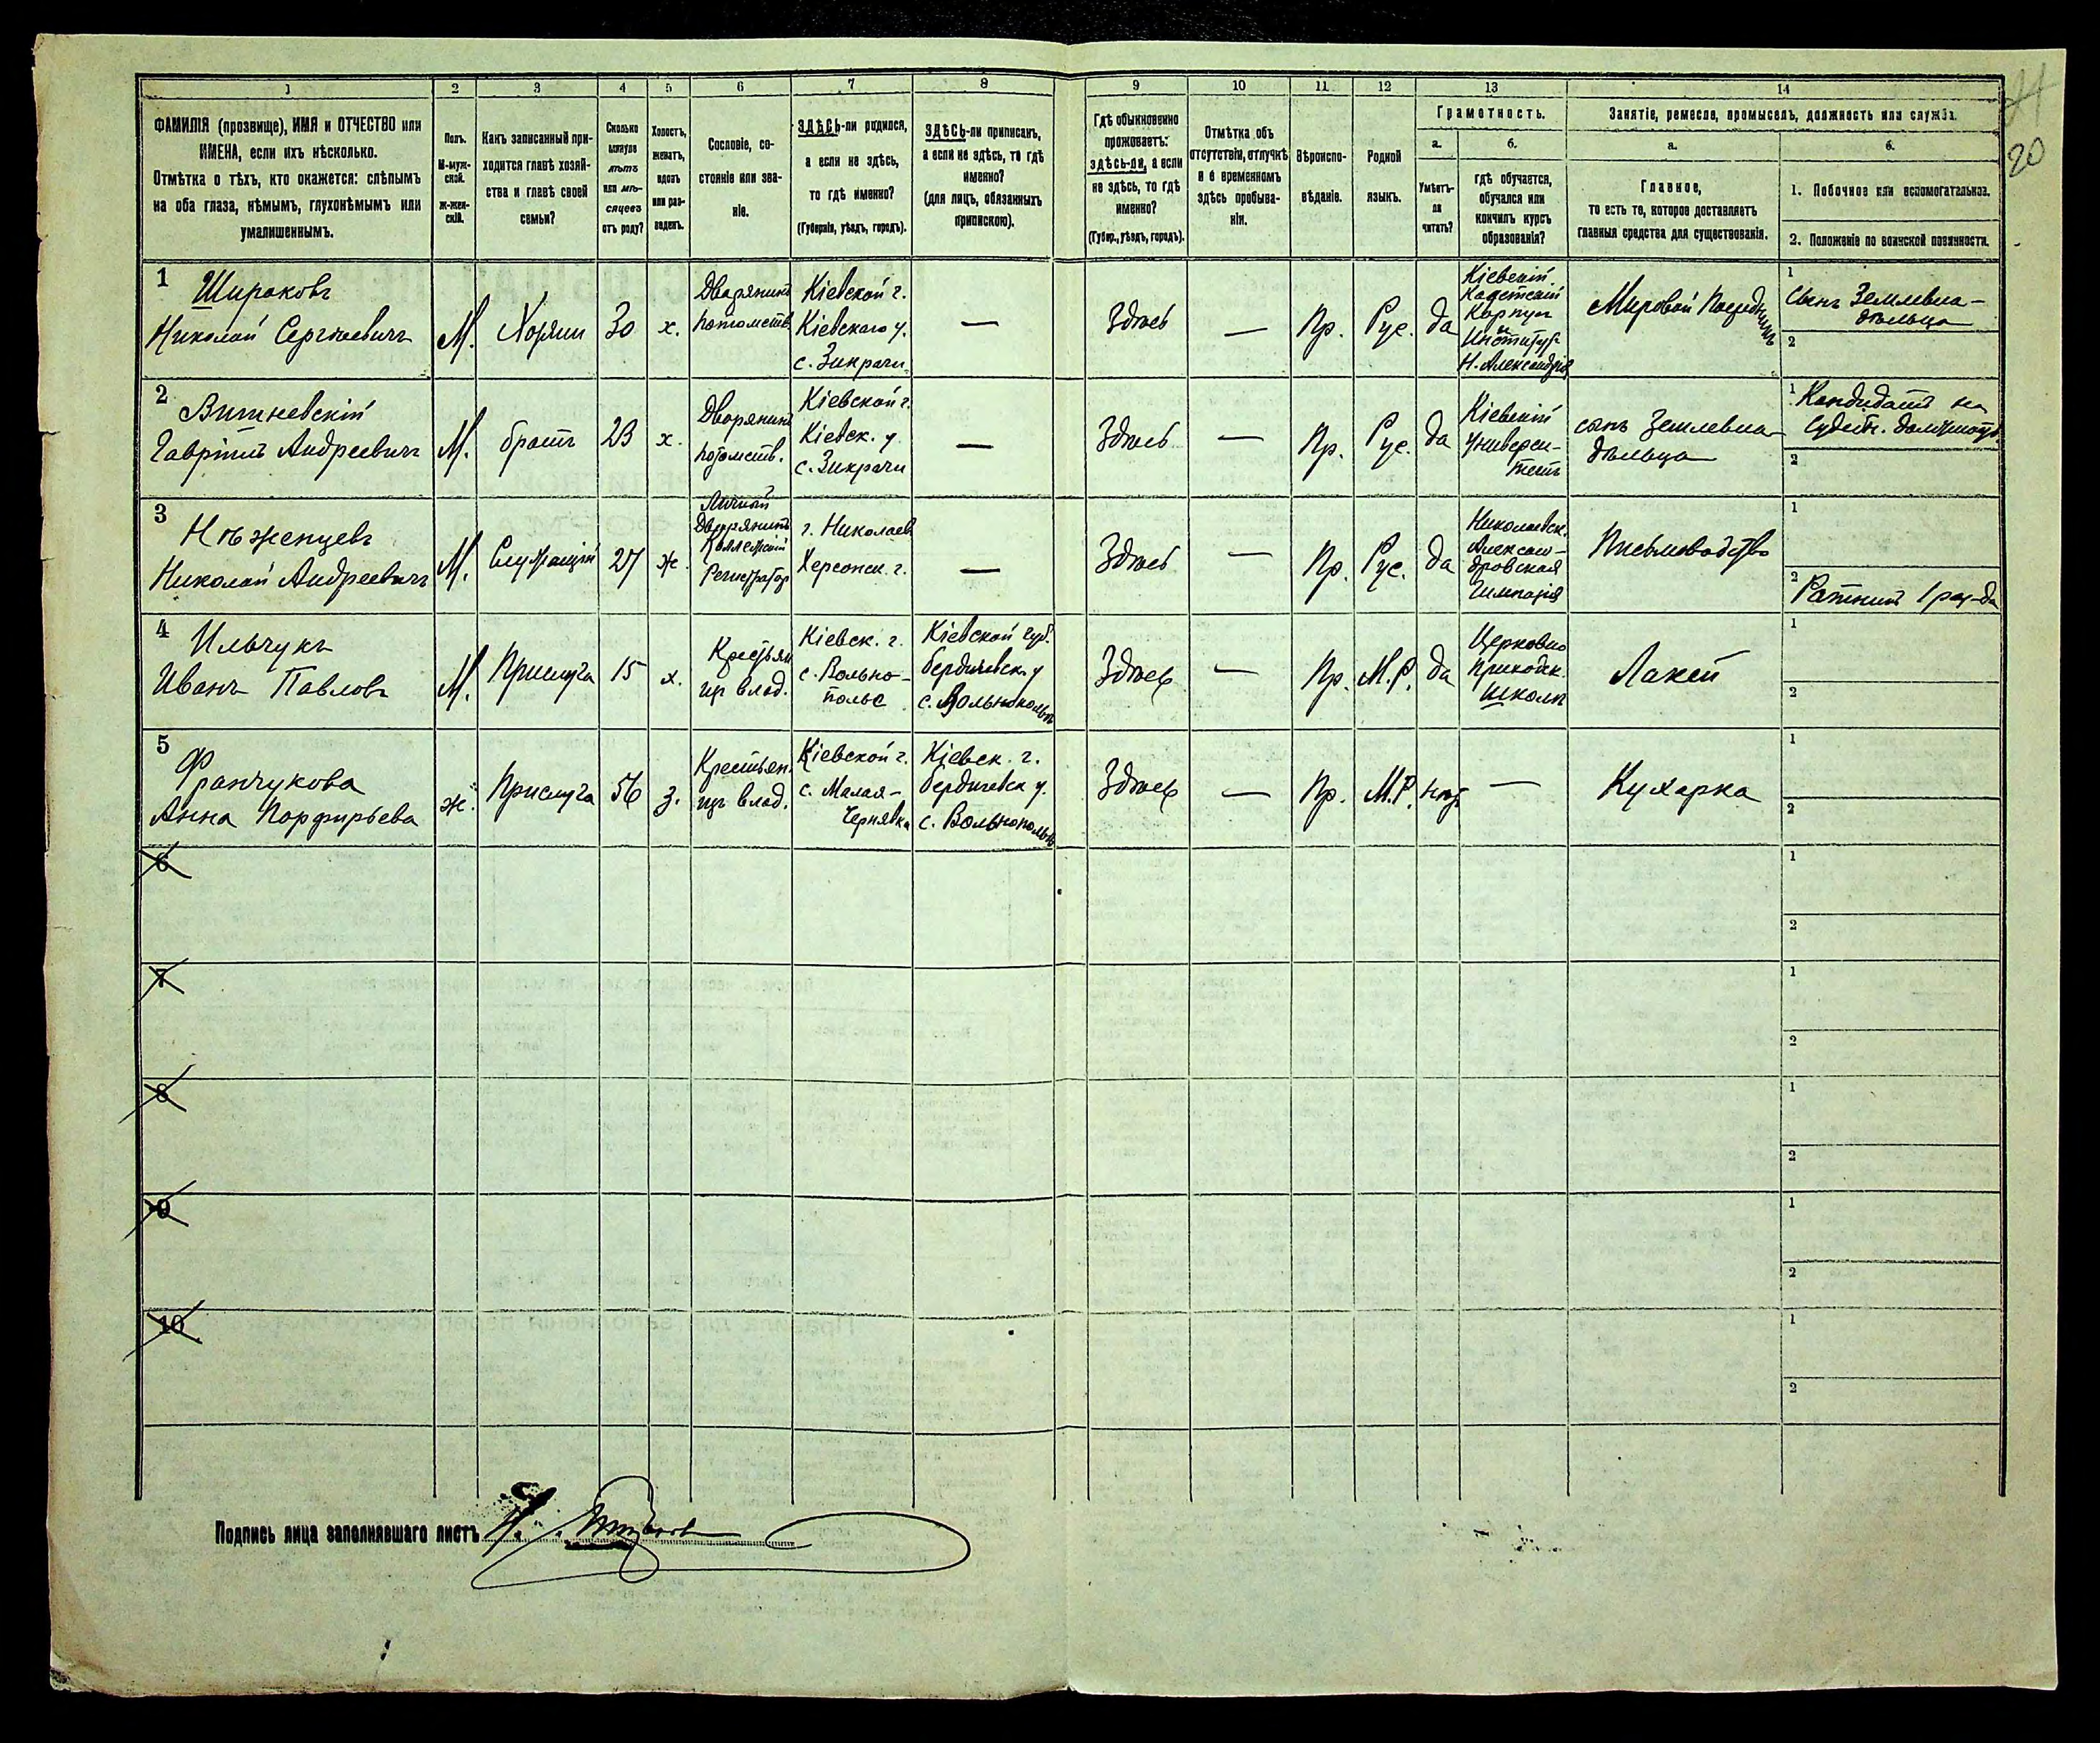 1
2
3
4
5
6
7
8
9
10
11
12
13
14
20
ФАМИЛІЯ (прозвище), ИМЯ и ОТЧЕСТВО или
ИМЕНА, если ихъ нѣсколько.
Отмѣтка о тѣхъ, кто окажется: слѣпымъ
на оба глаза, нѣмымъ, глухонѣмымъ или
умалишеннымъ.
Полъ.
М-муж-
ской.
ж-жен-
скій.
Какъ записанный при-
ходится главѣ хозяй-
ства и главѣ своей
семьи?
Сколько
минуло
лѣтъ
или мѣ-
сяцевъ
отъ роду?
Холостъ,
женатъ,
вдовъ
или раз-
веденъ.
Сословіе, со-
стояніе или зва-
ніе.
ЗДѢСЬ-ли родился,
а если не здѣсь,
то гдѣ именно?
(Губернія, уѣздъ, городъ).
ЗДѢСЬ-ли приписанъ,
а если не здѣсь, то гдѣ
именно?
(для лицъ, обязанныхъ
припискою).
Гдѣ обыкновенно
проживаетъ:
здѣсь-ли, а если
не здѣсь, то гдѣ
именно?
(Губер., уѣздъ, городъ).
Отмѣтка объ
отсутствіи, отлучкѣ
и о временномъ
здѣсь пребыва-
ніи.
Вѣроиспо-
вѣданіе.
Родной
языкъ.
Грамотность.
а.
Умѣетъ-
ли
читать?
б.
гдѣ обучается,
обучался или
кончилъ курсъ
образованія?
Занятіе, ремесло, промыселъ, должность или служба.
а.
Главное,
то есть то, которое доставляетъ
главныя средства для существованія.
б.
1. Побочное или вспомогательное.
2. Положеніе по воинской повинности.
1
Широковъ
Николай Сергѣевичъ
М.
Хозяин
30
х.
Дворянинъ
потомств.
Кіевской г.
Кіевскаго у.
с. Зикрачи
—
Здѣсь
—
Пр.
Рус.
да
Кіевскій
Кадетскій
Корпус
и
Институт
Н. Александріи
Мировой Посредникъ
1
Сынъ Землевла-
дѣльца
2
2
Вишневскій
Гавріилъ Андреевичъ
М.
братъ
23
х.
Дворянинъ
потомств.
Кіевской г.
Кіевск. у.
с. Зикрачи
—
Здѣсь
—
Пр.
Рус.
да
Кіевскій
Универси-
тетъ
сынъ Землевла-
дѣльца
1
Кандидатъ на
Судебн. должность
2
3
Нѣженцевъ
Николай Андреевичъ
М.
Служащій
27
ж.
Личный
Дворянинъ
Коллежскій
Регистратор
г. Николаев
Херсонск. г.
—
Здѣсь
—
Пр.
Рус.
да
Николаевск.
Алексан-
дровская
Гимназія
Письмоводство
1
2
Ратникъ 1 раз-да
4
Ильчукъ
Иванъ Павловъ
М.
Прислуга
15
х.
Крестьян
из влад.
Кіевск. г.
с. Вольно-
полье
Кіевской губ.
бердичевск. у
с. Вольнополье
Здѣсь
—
Пр.
М.Р.
да
Церковно
Приходск.
Школы
Лакей
1
2
5
Франчукова
Анна Порфирьева
ж.
Прислуга
56
з.
Крестьян.
из влад.
Кіевской г.
с. Малая-
Чернявка
Кіевск. г.
бердичевск у.
с. Вольнополье
Здѣсь
—
Пр.
М.Р.
нѣт
—
Кухарка
1
2
6
1
2
7
1
2
8
1
2
9
1
2
10
1
2
Подпись лица заполнявшаго листъ